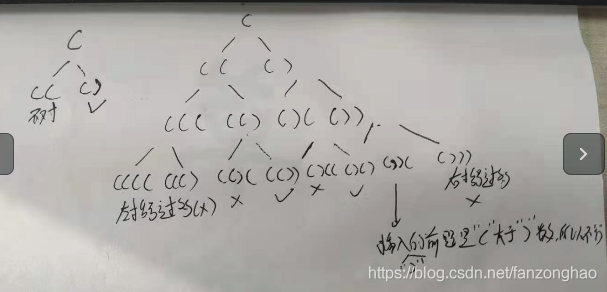 (
(
(( ()
(( ()
不对 ✓
((( (() ()( ())
(((( ((() (()( (()) ()(( ()() ())( ()))
左括号过多(×) × ✓ × ✓ 右括号过多
×
插入的前题是"("大于")"数,所以不行
")"
https://blog.csdn.net/fanzonghao